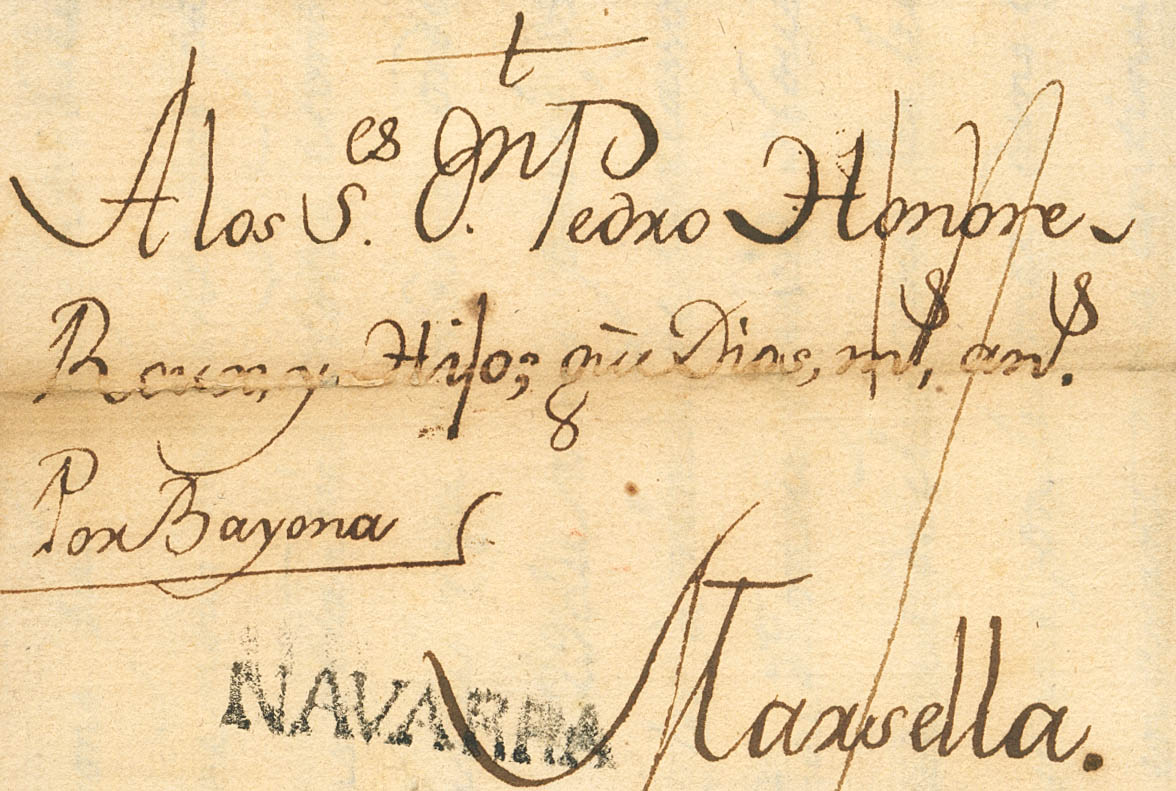 A los S.es Jn. Pedro Honore
y Hijo; gūe Dios, ms. as.
Por Bayona
NAVARRA
Marsella.